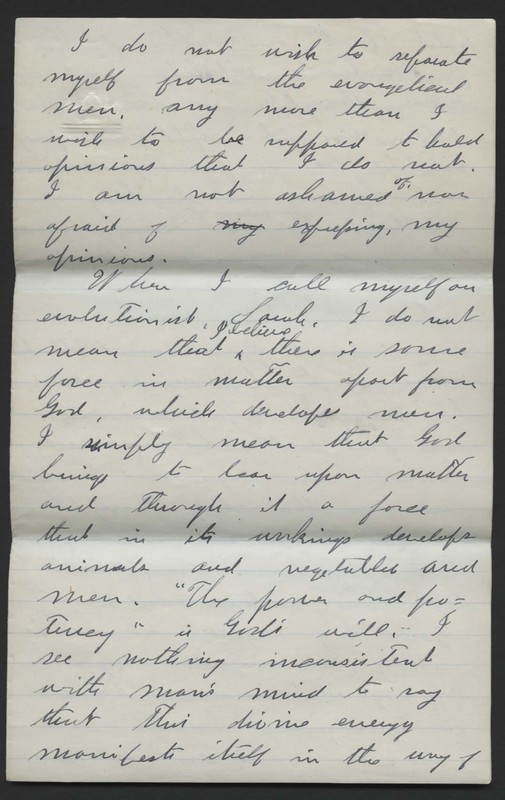 I do not wish to separate
myself from the evangelical
men, any more than I
wish to be supposed to hold
opinions that I do not.
I am not ashamed of, nor
afraid of my expressing, my
opinions.
When I call myself an
evolutionist, Sarah, I do not
mean that I believe there is some
force in matter apart from
God, which develops men.
I simply mean that God
brings to bear upon matter
and through it a force
that in its workings develops
animals and vegetables and
men. "The power and po=
tency" is God's will. I
see nothing inconsistent
with man's mind to say
that this divine energy
manifests itself in the way of